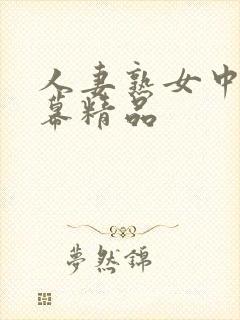 人妻熟女中
幕精品
梦然锦